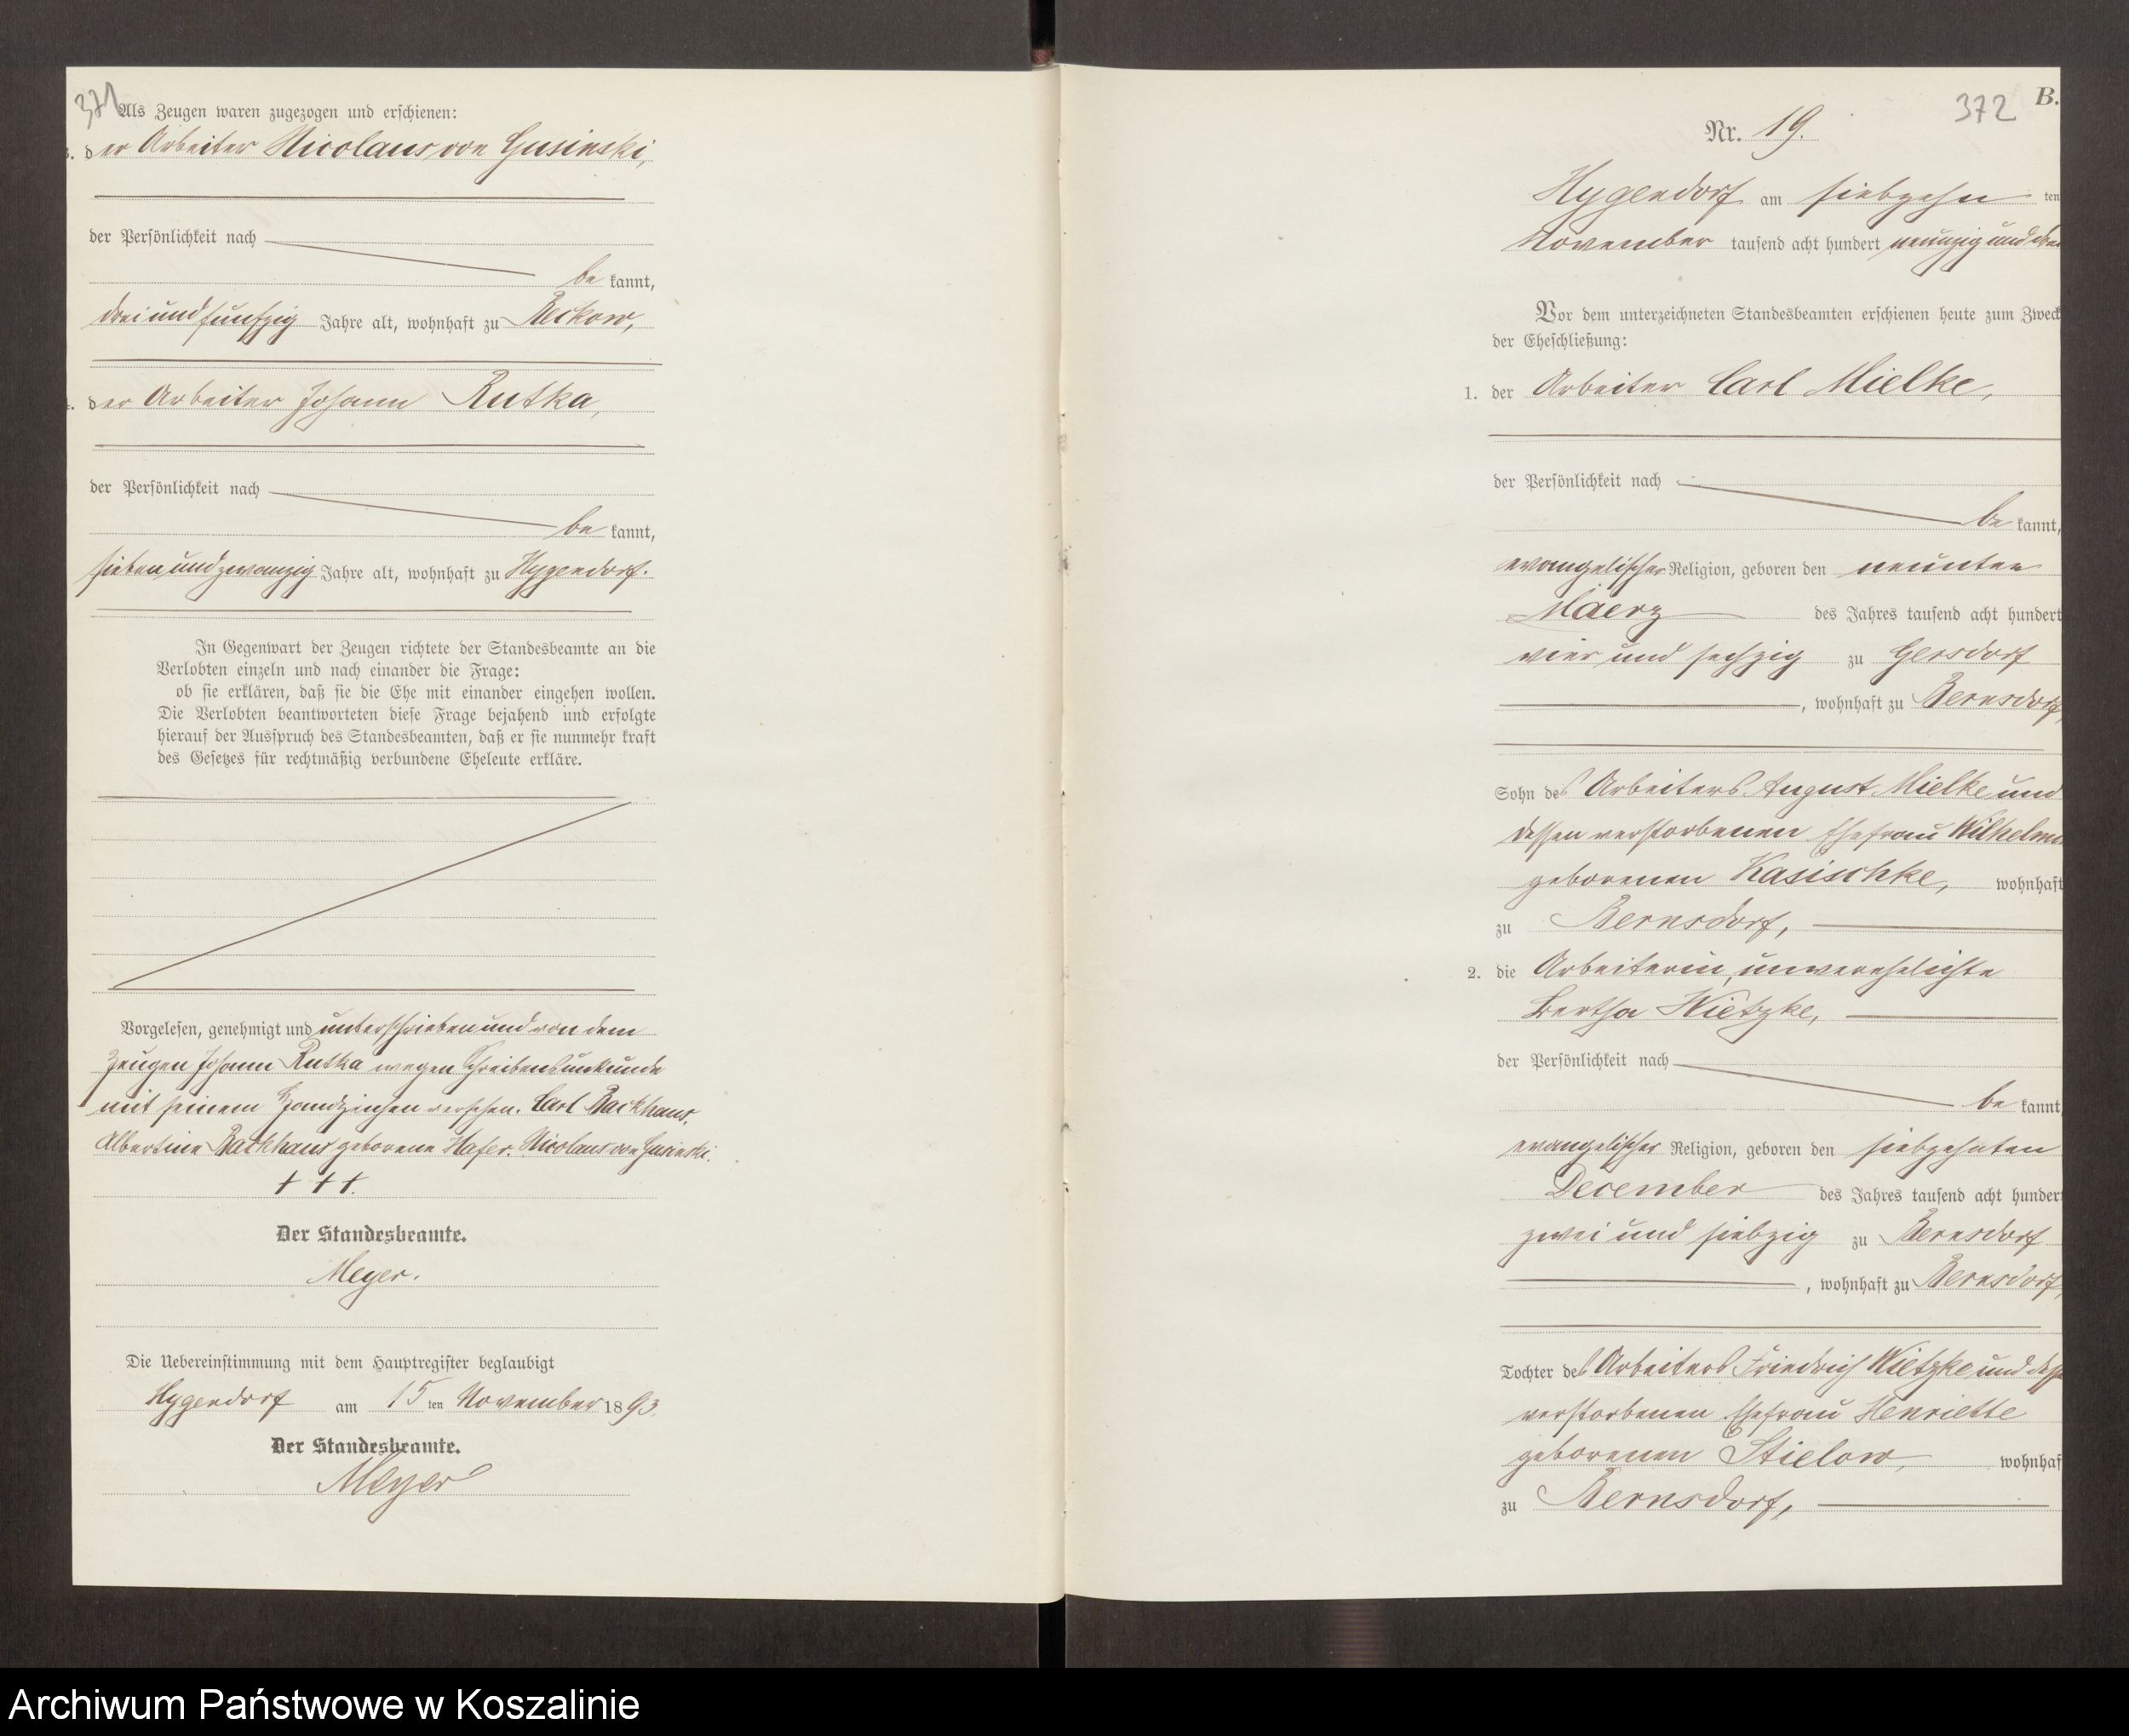 371
Als Zeugen waren zugezogen und erschienen:
3. der Arbeiter Nicolaus von Gusinski,
der Persönlichkeit nach
be kannt,
drei und funfzig Jahre alt, wohnhaft zu Reckow,
4. der Arbeiter Johann Rutka,
der Persönlichkeit nach
be kannt,
sieben und zwanzig Jahre alt, wohnhaft zu Hygendorf.
In Gegenwart der Zeugen richtete der Standesbeamte an die
Verlobten einzeln und nach einander die Frage:
ob sie erklären, daß sie die Ehe mit einander eingehen wollen.
Die Verlobten beantworteten diese Frage bejahend und erfolgte
hierauf der Ausspruch des Standesbeamten, daß er sie nunmehr kraft
des Gesetzes für rechtmäßig verbundene Eheleute erkläre.
Vorgelesen, genehmigt und unterschrieben und von dem
Zeugen Johann Rutka wegen Schreibensunkunde
mit seinem Handzeichen versehen. Carl Backhaus,
Albertine Backhaus geborene Hafer. Nicolaus von Gusinski.
+ + +.
Der Standesbeamte.
Meyer.
Die Uebereinstimmung mit dem Hauptregister beglaubigt
Hygendorf am 15 ten November 1893.
Der Standesbeamte.
Meyer
B.
372
Nr. 19.
Hygendorf am siebzehn ten
November tausend acht hundert neunzig und drei
Vor dem unterzeichneten Standesbeamten erschienen heute zum Zweck
der Eheschließung:
1. der Arbeiter Carl Mielke,
der Persönlichkeit nach
be kannt,
evangelischer Religion, geboren den neunten
Maerz des Jahres tausend acht hundert
vier und sechzig zu Gersdorf
, wohnhaft zu Bernsdorf,
Sohn des Arbeiters August Mielke und
dessen verstorbenen Ehefrau Wilhelmi
geborenen Kasischke, wohnhaft
zu Bernsdorf,
2. die Arbeiterin, unverehelichte
Bertha Wietzke,
der Persönlichkeit nach
be kannt,
evangelischer Religion, geboren den siebzehnten
December des Jahres tausend acht hundert
zwei und siebzig zu Bernsdorf
, wohnhaft zu Bernsdorf,
Tochter des Arbeiters Friedrich Wietzke und desse
verstorbenen Ehefrau Henriette
geborenen Stielow, wohnhaf
zu Bernsdorf,
Archiwum Państwowe w Koszalinie